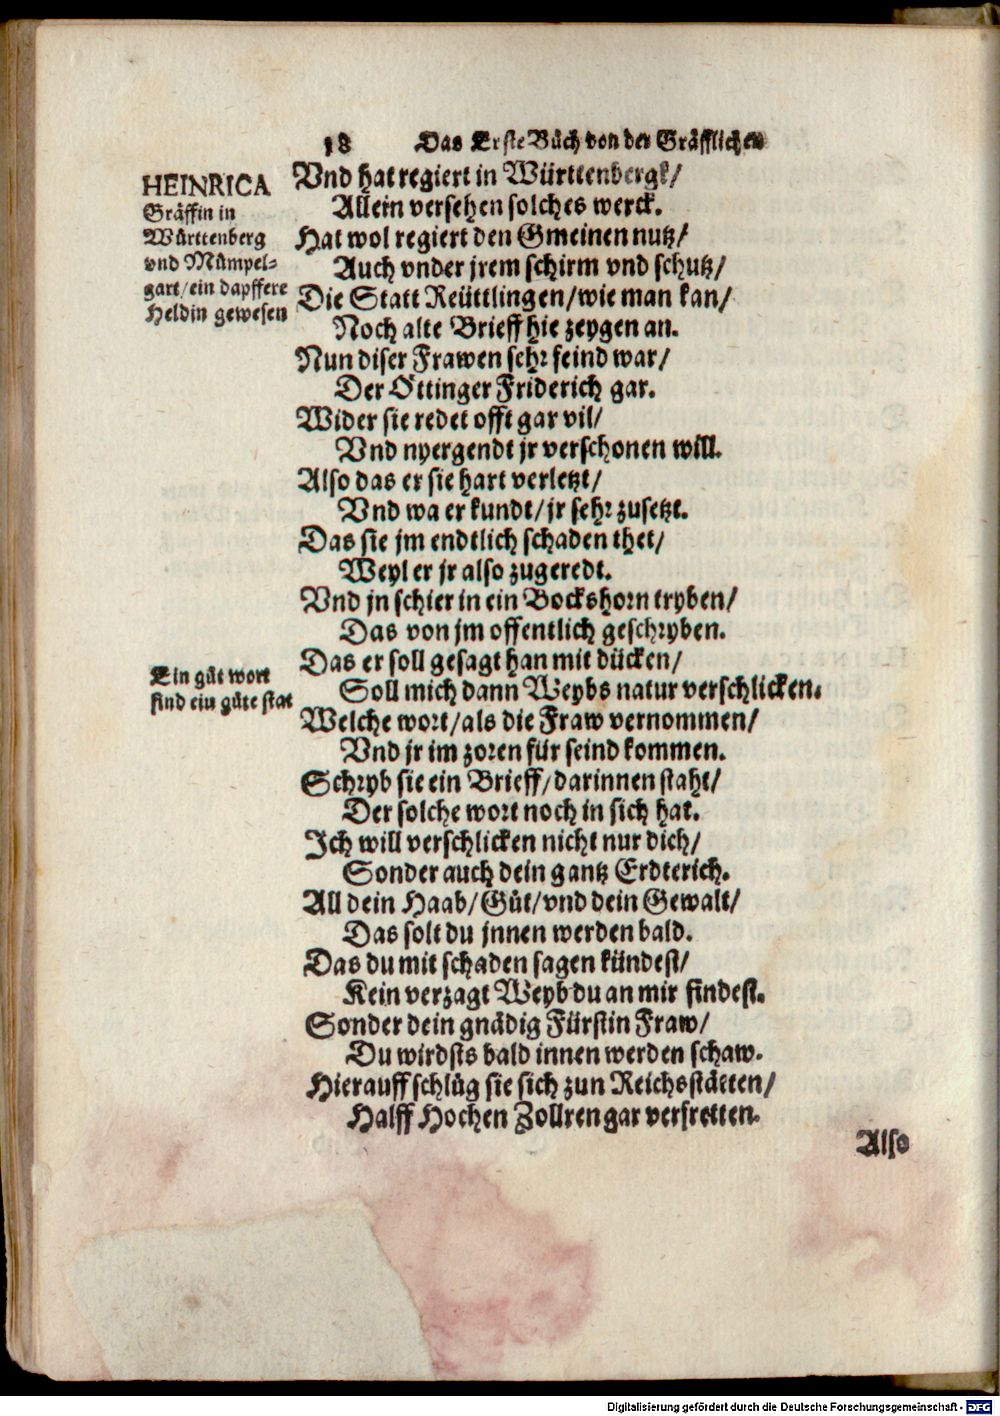 18 Das Erste Bůch von der Gräfflichen
HEINRICA
Gräffin in
Württenberg
vnd Mümpel-
gart/ein dapffere
Heldin gewesen
Vnd hat regiert in Württenbergk/
Allein versehen solches werck.
Hat wol regiert den Gmeinen nutz/
Auch vnder jrem schirm vnd schutz/
Die Statt Reüttlingen/wie man kan/
Noch alte Brieff hie zeygen an.
Nun diser Frawen sehr feind war/
Der Öttinger Friderich gar.
Wider sie redet offt gar vil/
Vnd nyergendt jr verschonen will.
Also das er sie hart verletzt/
Vnd wa er kundt/jr sehr zusetzt.
Das sie jm endtlich schaden thet/
Weyl er jr also zugeredt.
Vnd jn schier in ein Bockshorn tryben/
Das von jm offentlich geschryben.
Das er soll gesagt han mit dücken/
Soll mich dann Weybs natur verschlicken.
Ein gůt wort
find ein gůte stat
Welche wort/als die Fraw vernommen/
Vnd jr im zoren für seind kommen.
Schryb sie ein Brieff/darinnen staht/
Der solche wort noch in sich hat.
Ich will verschlicken nicht nur dich/
Sonder auch dein gantz Erdterich.
All dein Haab/Gůt/vnd dein Gewalt/
Das solt du jnnen werden bald.
Das du mit schaden sagen kündest/
Kein verzagt Weyb du an mir findest.
Sonder dein gnädig Fürstin Fraw/
Du wirdsts bald innen werden schaw.
Hierauff schlůg sie sich zun Reichsstätten/
Halff Hochen Zollren gar verfretten.
Also
Digitalisierung gefördert durch die Deutsche Forschungsgemeinschaft - DFG